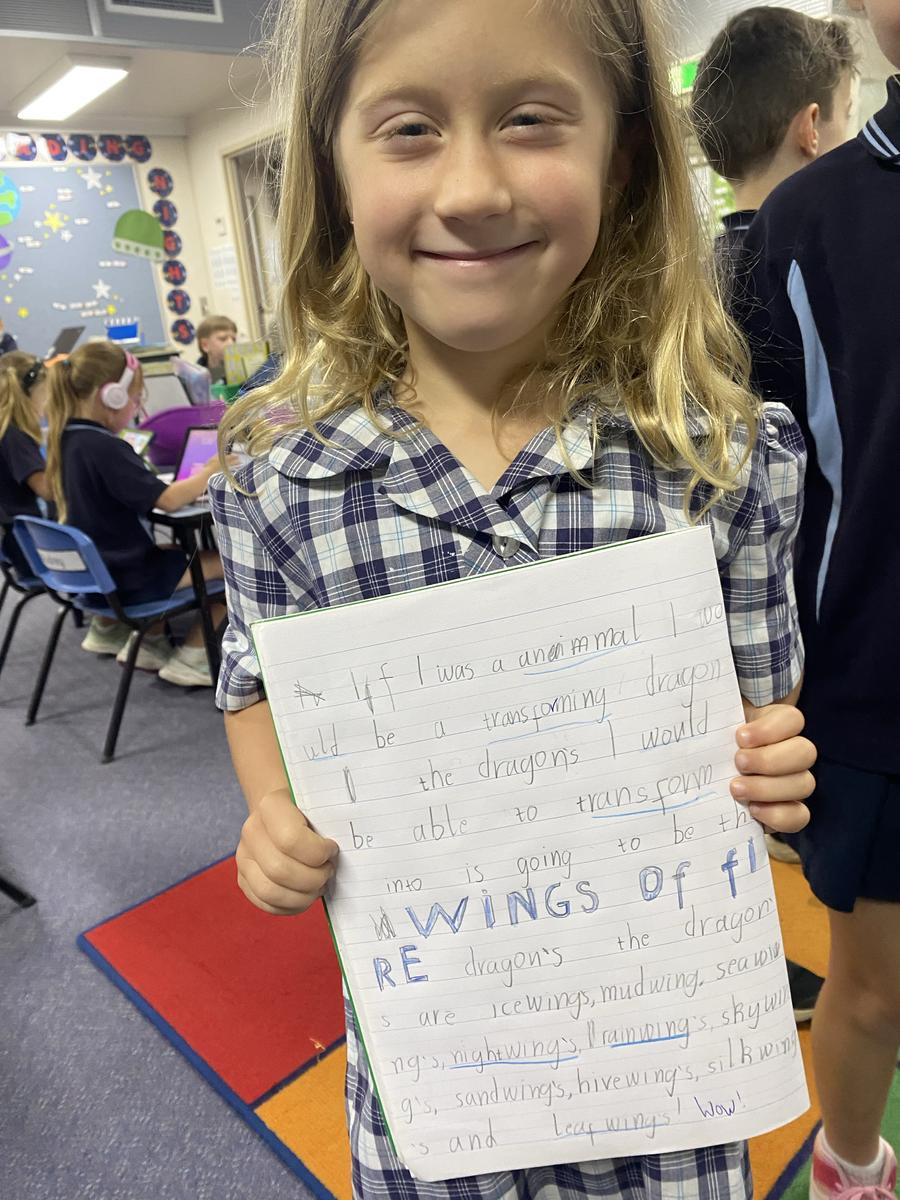 DING
NIGHTS
If I was a anenimmal I wo
uld be a transforming dragon
the dragons I would
be able to transform
into is going to be th
WiNGS Of fI
RE dragon's the dragon
s are icewings, mudwing, seawi
ng's, nightwing's, rainwing's, skywin
g's, sandwing's, hivewing's, silkwing
's and Leafwings! Wow!